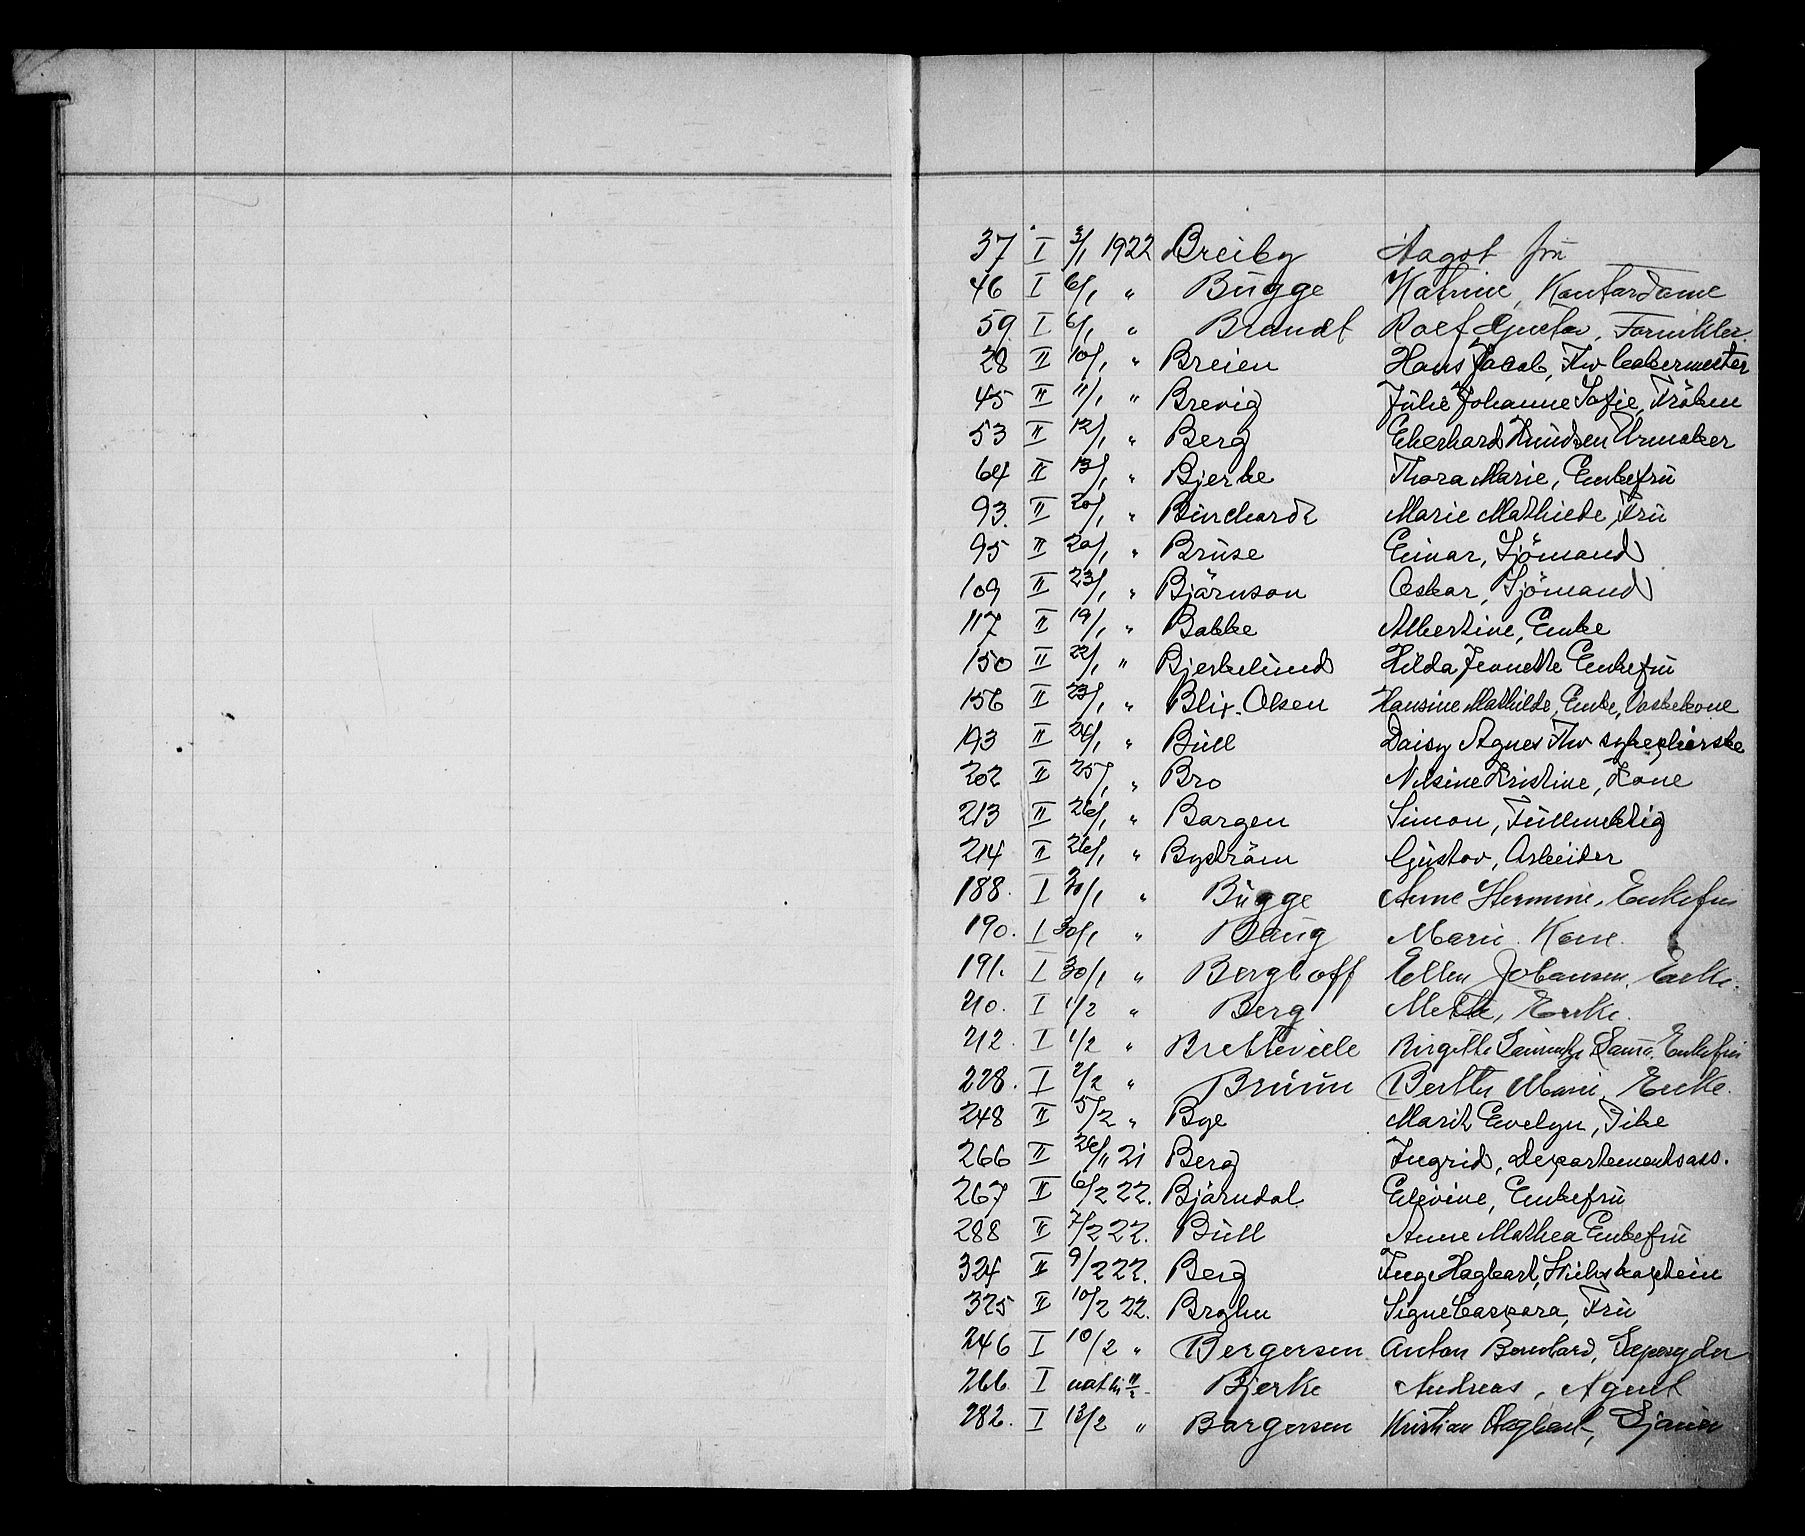 37 I 3/1 1922 Breiby Aagot fru
46 I 6/1 " Bugge Katrine, Kontordame
59 I 6/1 " Brandt Rolf Gustav,
28 II 10/1 " Breien Hans Jacob, Fhv
45 II 11/1 " Brevig Julie Johanne Sofie, Fröken
53 II 12/1 " Berg Eberhard Knudsen Urmaker
64 II 13/1 " Bjerke Thora Marie, Enkefru
93. II 20/1 " Burchardt Marie Mathilde, Fru
95 II 20/1 " Bruse Einar, Sjömand
109 II 23/1 " Bjärnson Oskar, Sjömand
117 II 19/1 " Bakke Albertine, Enke
150 II 22/1 " Bjerkelund Hilda Jeanette Enkefru
156 II 23/1 " Blix-Olsen Hansine Mathilde, Enke, Vaskekone
193 II 24/1 " Bull Daisy Agnes Fhv sykepleierske
202 II 25/1 " Bro Nilsine Kristine, Kone
213 II 26/1 " Borgen Simon, Fullmektig
214 II 26/1 " Byström Gustav, Arbeider
188. I 30/1 " Bugge Anne Hermine, Enkefru
190. I 30/1 " Baug Marie Kone.
191. I 30/1 " Berghoff Ellen Johansen, Enke.
210. I 1/2 " Berg Mette, Enke.
212. I 1/2 " Bretteville Birgitte Enkefru
228. I 2/2 " Bruun Berthe Marie, Enke.
248 II 5/2 " Bye Marit Evelyn, Pike
266 II 26/11 21 Berg Ingrid, Departementsass.
267 II 6/2 22. Bjärndal Elevine, Enkefru
288 II 7/2 22. Bull Anne Mathea Enkefru
324 II 9/2 22. Berg Inge Hagbart, Skibskaptein
325 II 10/2 22. Bryhn Signe Caspara, Fru
246 I 10/2 " Bergersen Anton Bernhard,
266. I nat til 11/2 Bjerke Andreas, Agent
282. I 13/2 " Borgersen Kristian Hagbart,